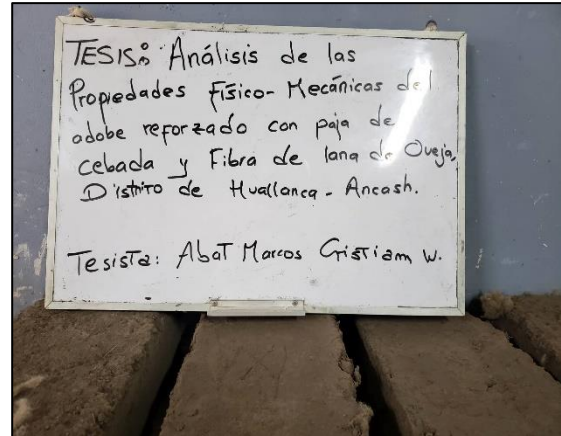 TESIS: Análisis de las
Propiedades Físico-Mecánicas del
adobe reforzado con paja de
cebada y Fibra de lana de Oveja,
Distrito de Huallanca - Ancash.
Tesista: Abat Marcos Cristiam W.